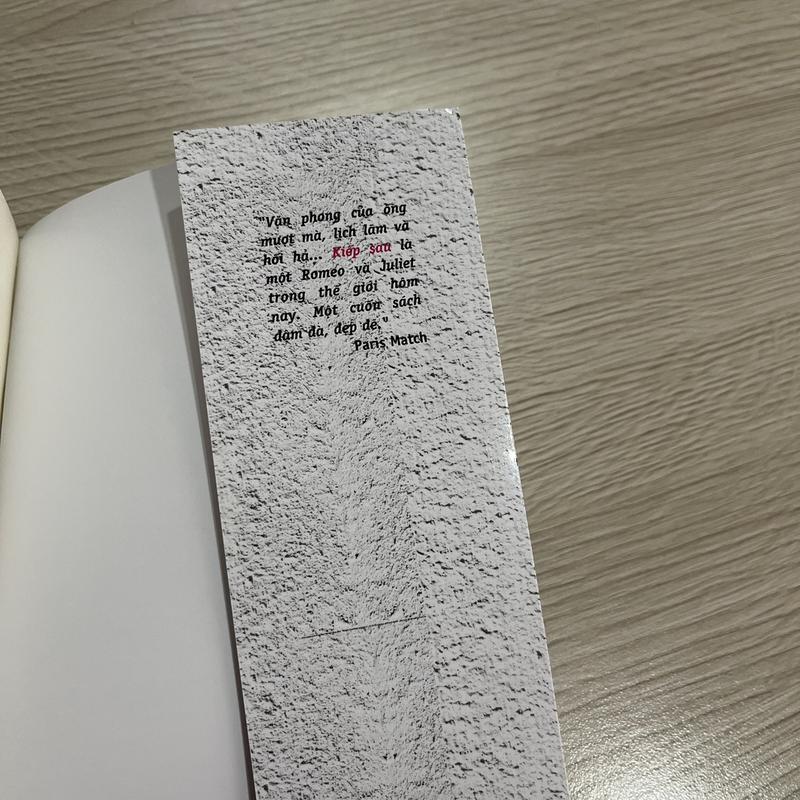 "Văn phong của ông
mượt mà, lịch lãm và
hối hả... Kiếp sau là
một Romeo và Juliet
trong thế giới hôm
nay. Một cuốn sách
đậm đà, đẹp đẽ."
Paris Match